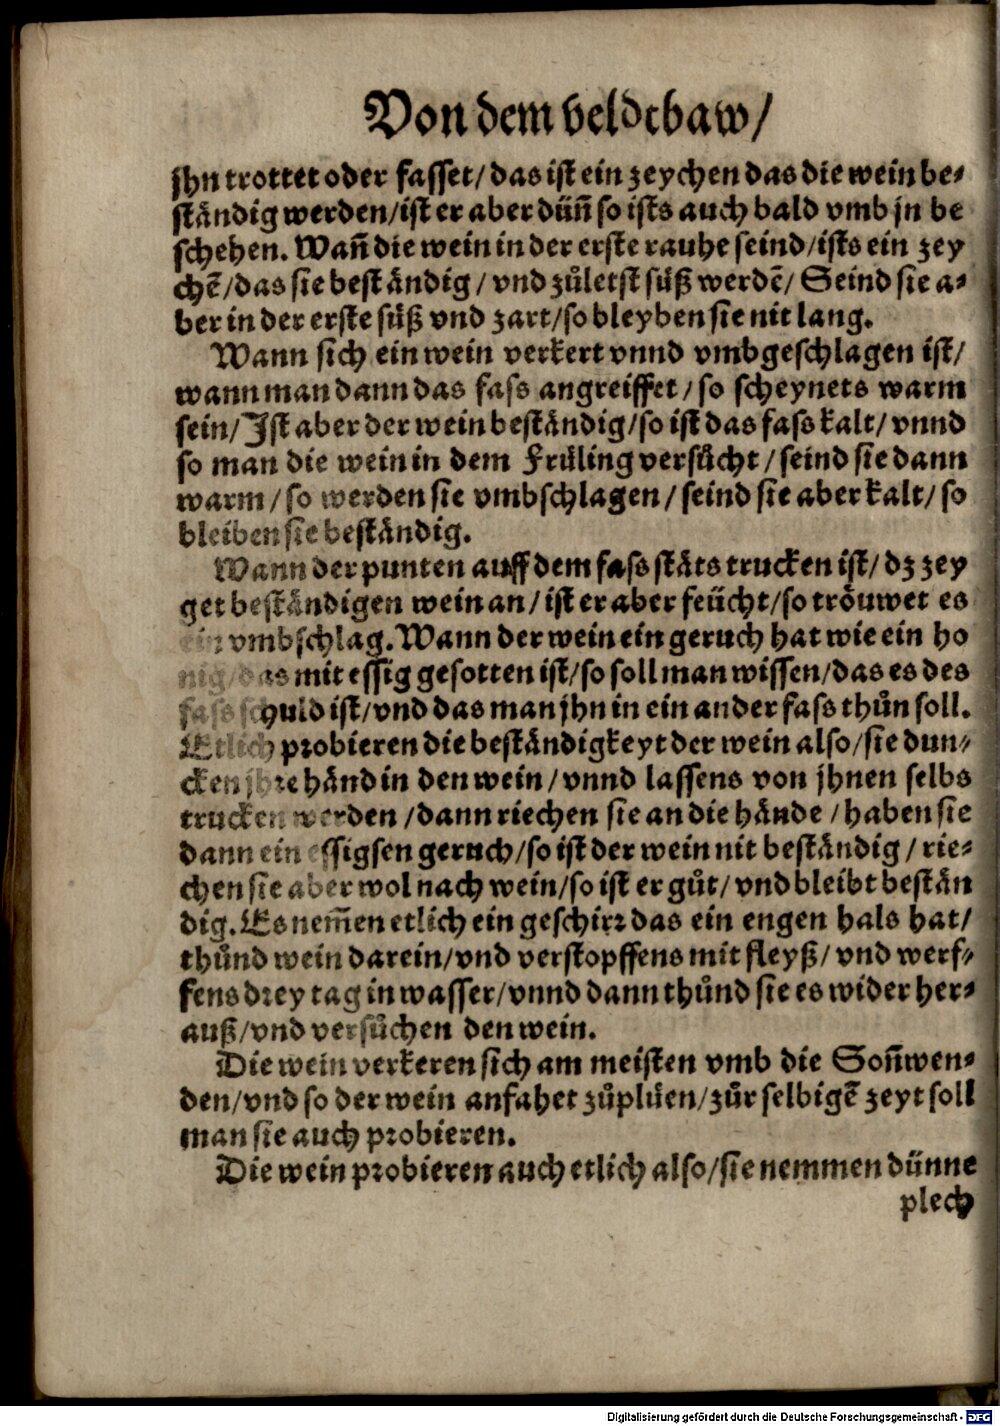 Von dem veldtbaw/
jhn trottet oder fasset/ das ist ein zeychen das die wein be⸗
ständig werden/ ist er aber düñ so ists auch bald vmb jn be
schehen. Wañ die wein in der erste rauhe seind/ ists ein zey
chẽ/ das sie beständig / vnd zůletst süß werdẽ/ Seind sie a⸗
ber in der erste süß vnd zart/ so bleyben sie nit lang.
Wann sich ein wein verkert vnnd vmbgeschlagen ist/
wann man dann das fass angreiffet / so scheynets warm
sein/ Ist aber der wein beständig/ so ist das fass kalt/ vnnd
so man die wein in dem Früling versůcht / seind sie dann
warm / so werden sie vmbschlagen / seind sie aber kalt/ so
bleiben sie beständig.
Wann der punten auff dem fass stäts trucken ist/ dz zey
get beständigen wein an / ist er aber feücht/ so tröuwet es
ein vmbschlag. Wann der wein ein geruch hat wie ein ho
nig/ das mit essig gesotten ist/ so soll man wissen/ das es des
fass schuld ist/ vnd das man jhn in ein ander fass thůn soll.
Etlich probieren die beständigkeyt der wein also/ sie dun⸗
cken jhre händ in den wein / vnnd lassens von jhnen selbs
trucken werden / dann riechen sie an die hände / haben sie
dann ein essigsen geruch/ so ist der wein nit beständig / rie⸗
chen sie aber wol nach wein/ so ist er gůt/ vnd bleibt bestän
dig. Es nem̃en etlich ein geschirr das ein engen hals hat/
thůnd wein darein/ vnd verstopffens mit fleyß/ vnd werf⸗
fens drey tag in wasser/ vnnd dann thůnd sie es wider her⸗
auß/ vnd versůchen den wein.
Die wein verkeren sich am meisten vmb die Soñwen⸗
den/ vnd so der wein anfahet zůplüen/ zůr selbigẽ zeyt soll
man sie auch probieren.
Die wein probieren auch etlich also/ sie nemmen dünne
plech
Digitalisierung gefördert durch die Deutsche Forschungsgemeinschaft - DFG